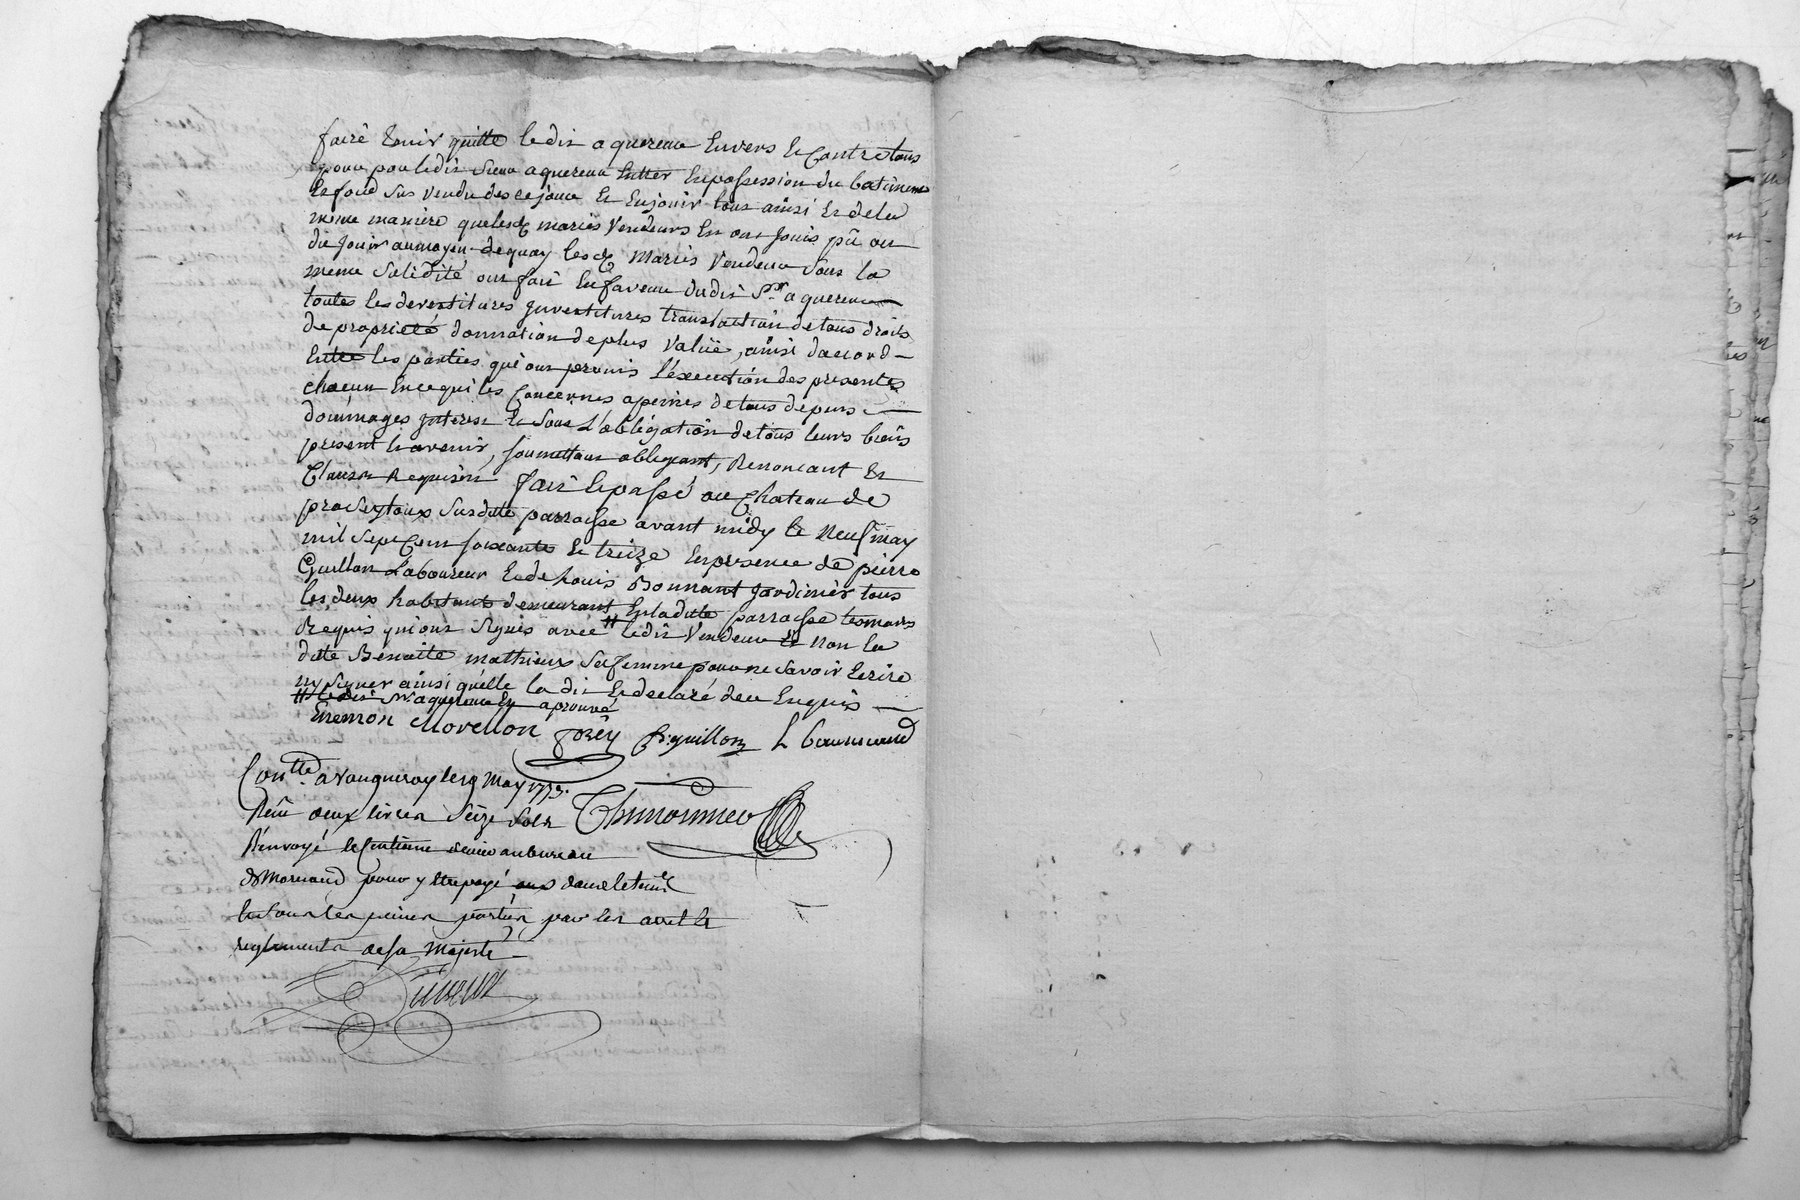 faire tenir quitte ledit aquereur Envers Et Contre tous
pour par ledit sieur aquereur Entter En possession du batiment
Et fond sus vendu des ce jour Et En jouir tout ainsi Et de la
meme maniere que lesd. mariés Vendeurs En ont Jouis pû ou
dû Jouir au moyen de quoy lesd. Mariés Vendeur sous la
meme solidité ont fait En faveur dudit Sr. aquereur
toutes les devestitures Jnvestitures translaction de tous droits
de proprieté donnation de plus Valüe, ainsi daccord
Entre les parties qui ont promis l'éxecution des presentes
chacun En ce qui les Concernes a peines de tous depens
dommages Jnterest Et sous L'obligation de tous leurs biens
present h avenir, soumettant obligeant, Renoncant Et
Clauses Requises fait Et passé au Chateau de
proseytoux susdite parroisse avant midy le neuf may
mil sept Cent soixante Et treize En presence de pierre
Guillon Laboureur Et de Louis Bonnant Jardinier tous
les deux habitants demeurant En ladite parroisse temoins
Requis qui ont signés avec # ledit Vendeur Et non la
dite Benoitte mathieux sa femme pour ne savoir Ecrire
ny signer ainsi qu'elle la dit Et declaré de ce Enquis
# ledit Sr. aquereur Et aprouvé
Enemon Morellon forêy P. guillon L bonnand
Contlle. a Vaugneray le 19 May 1773.
Reçu deux livres Seize Sols
Renvoyé le Centieme denier au bureau
de Mornand pour y Etre payé dans le tems
Et sous les peines portées par les arrets Et
reglements de sa Majesté